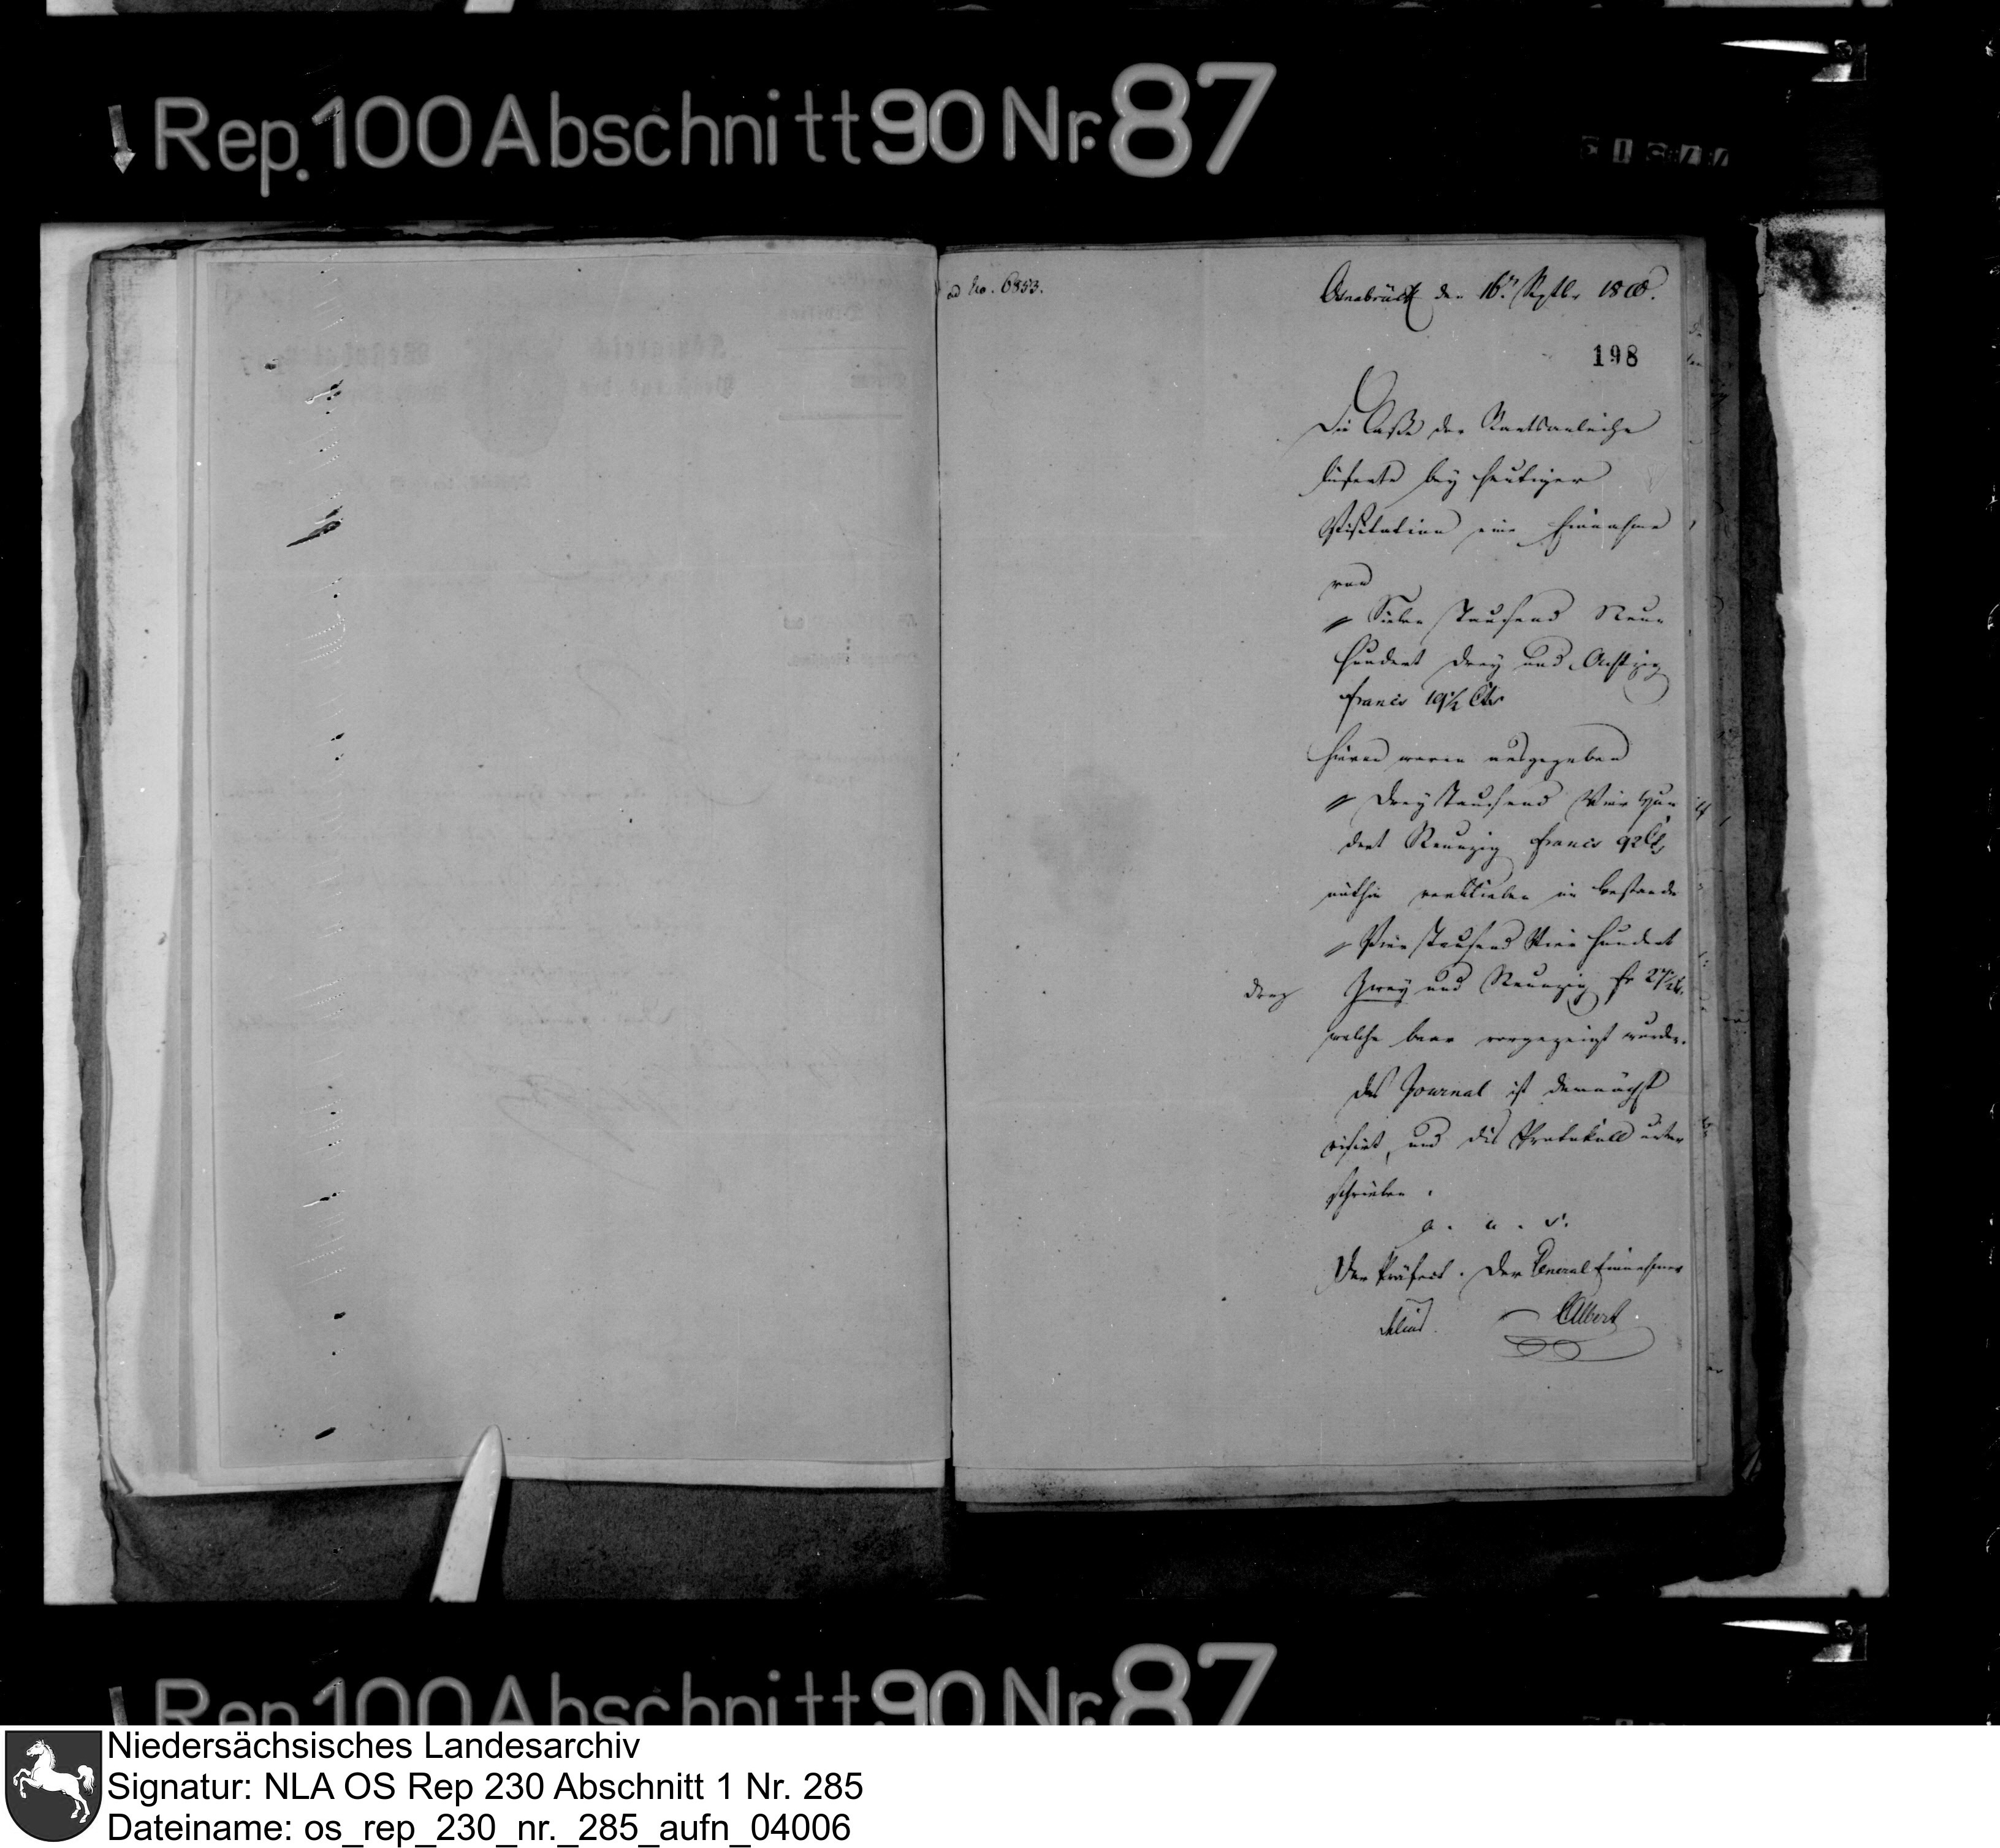 Rep. 100 Abschnitt 90 Nr. 87
ad No. 6853.
Osnabrück den 16t. Septbr 1808.
198
Die Caße der Staatsanleihe
lieferte bey heutiger
Visitation eine Einnahme
von
Sieben tausend Neun
hundert drey und Achtzig
francs 19½ Cts
hievon waren ausgegeben
drey tausend Vier hun
dert Neunzig francs 92 Cts
mithin verblieben in bestande
Vier tausend Vier hundert
drey Zwey und Neunzig fr 27½ Ct.
welche baar vorgezeigt wurden.
das Journal ist demnächst
visirt, und dis Protokoll unter
schrieben.
a. u. s.
Der Präfect. Der General Einnehmer
Delius. CAlbert
Rep. 100 Abschnitt 90 Nr. 87
Niedersächsisches Landesarchiv
Signatur: NLA OS Rep 230 Abschnitt 1 Nr. 285
Dateiname: os_rep_230_nr._285_aufn_04006